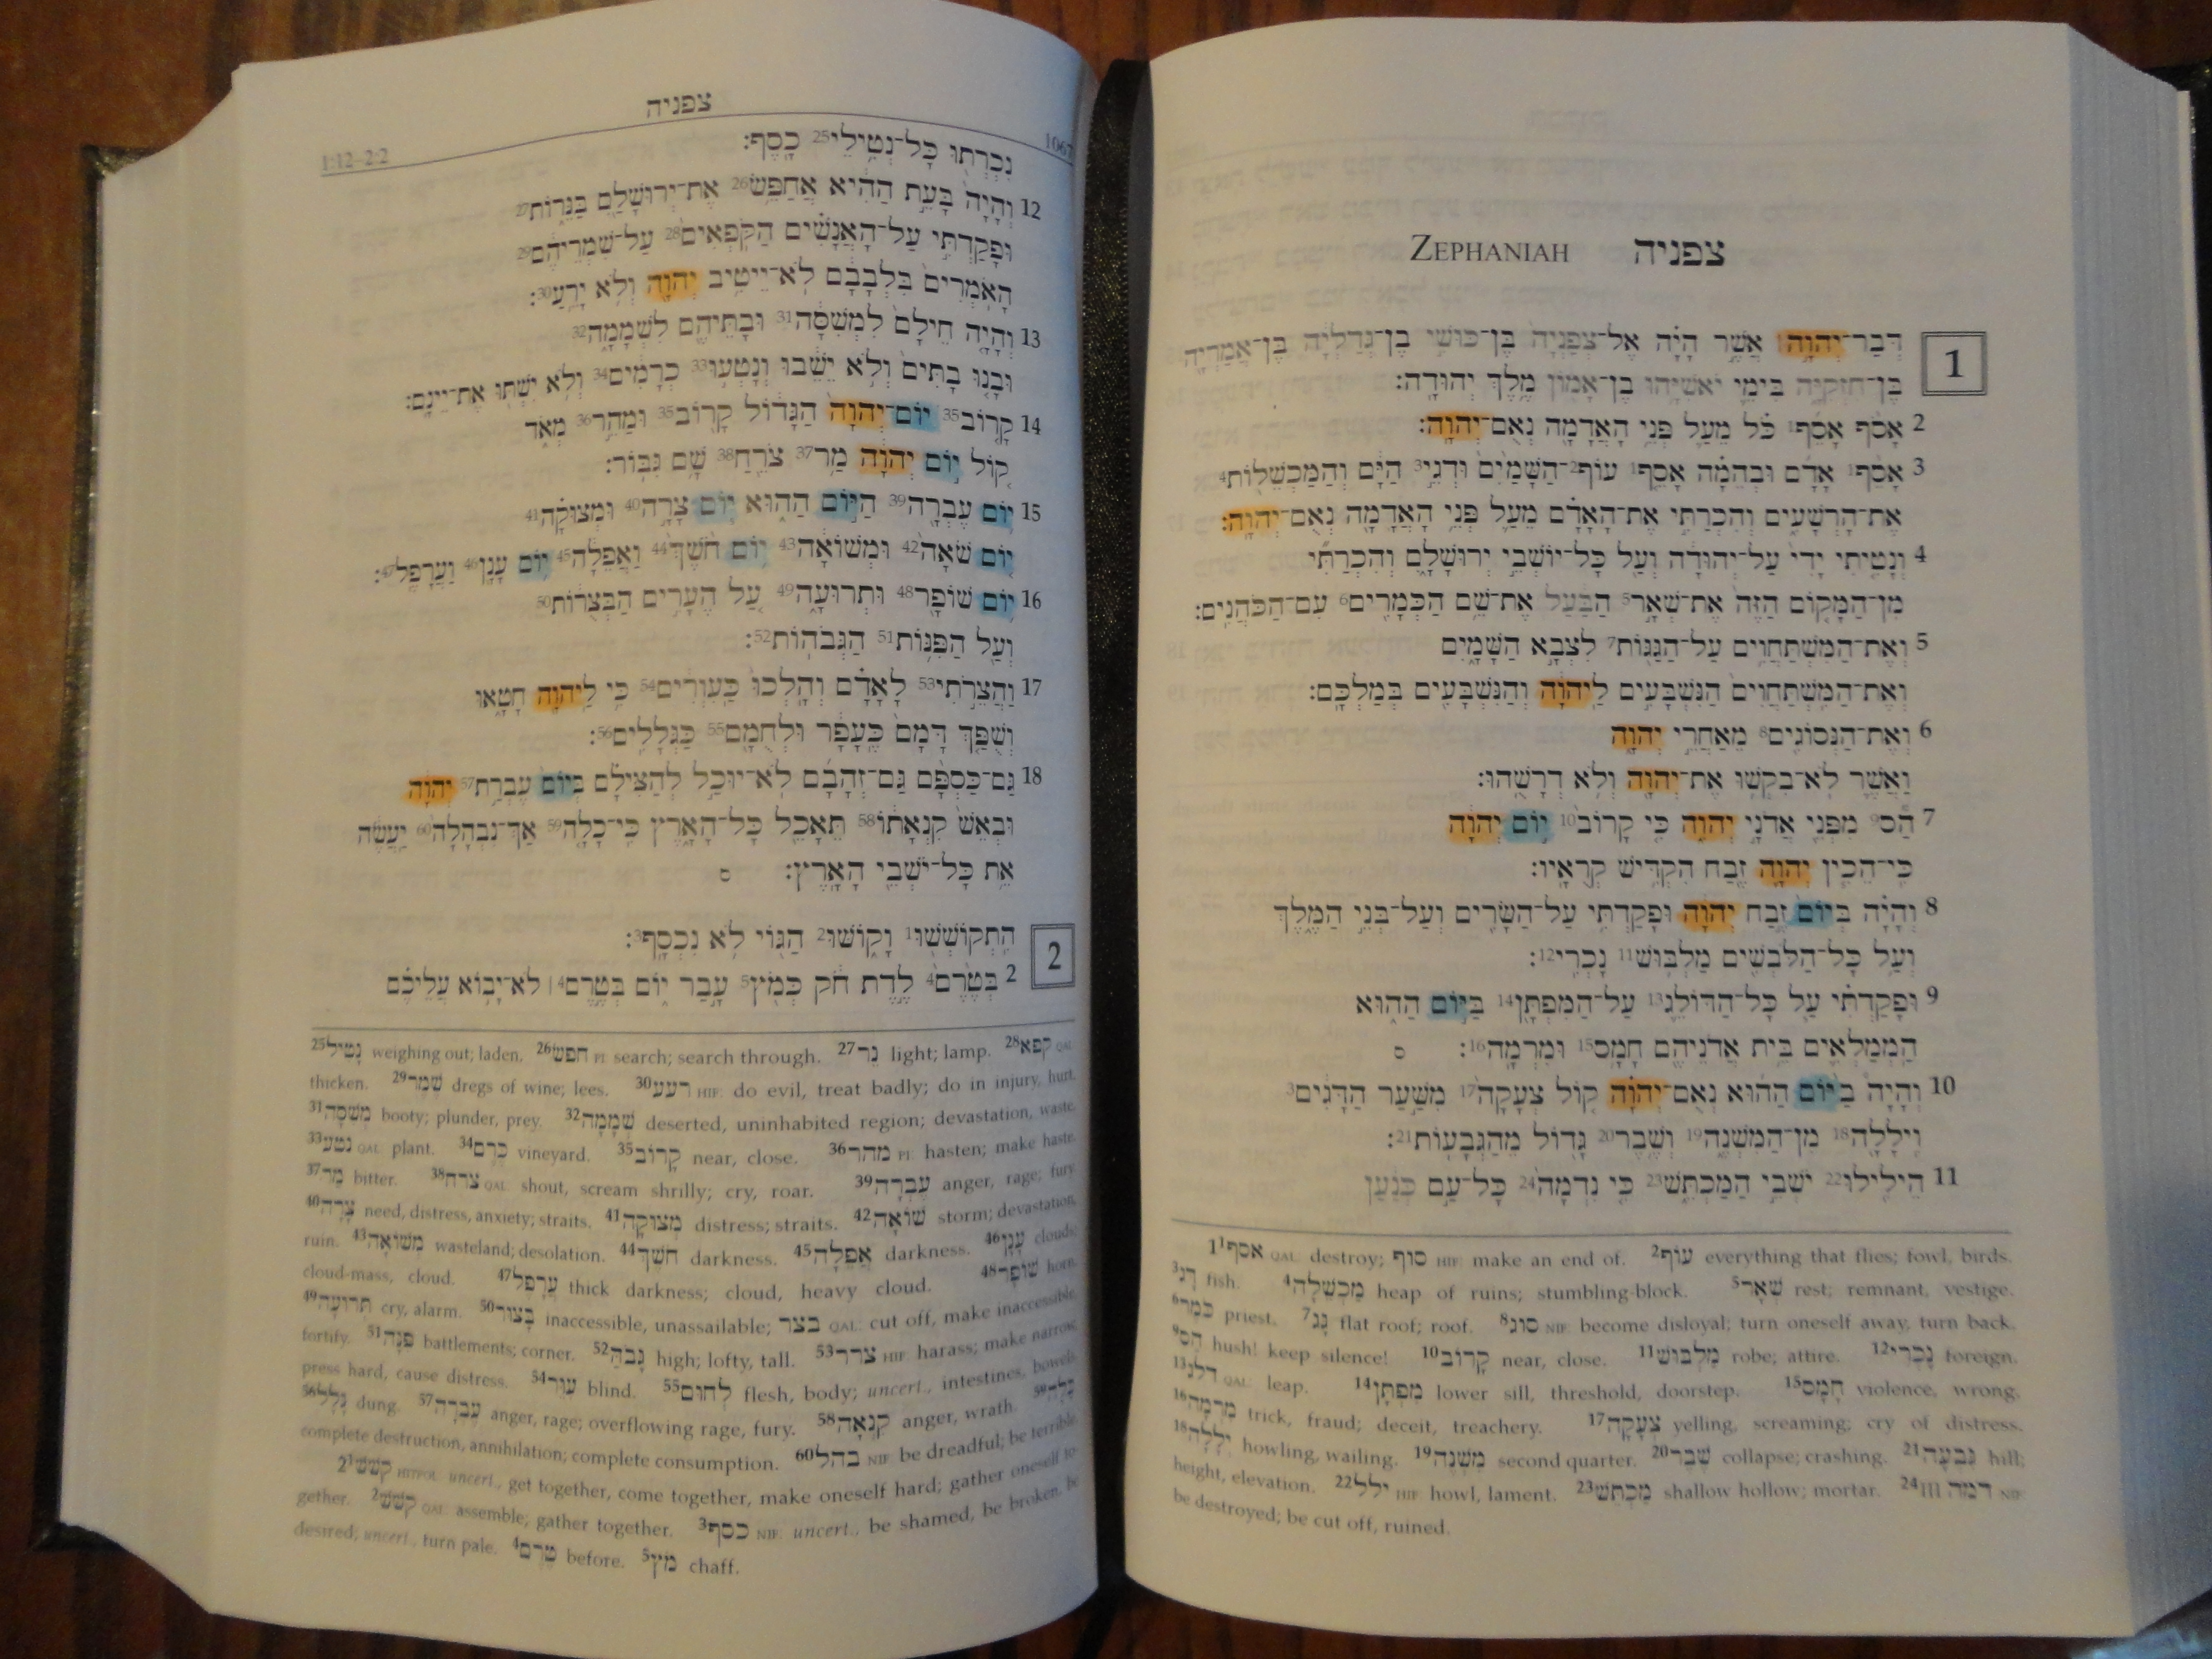 ZEPHANIAH צפניה
1 דְּבַר־יְהוָה ׀ אֲשֶׁר הָיָה אֶל־צְפַנְיָה בֶּן־כּוּשִׁי בֶן־גְּדַלְיָה בֶּן־אֲמַרְיָה
בֶּן־חִזְקִיָּה בִּימֵי יֹאשִׁיָּהוּ בֶן־אָמוֹן מֶלֶךְ יְהוּדָה׃
2 אָסֹף אָסֵף1 כֹּל מֵעַל פְּנֵי הָאֲדָמָה נְאֻם־יְהוָה׃
3 אָסֵף1 אָדָם וּבְהֵמָה אָסֵף1 עוֹף2־הַשָּׁמַיִם וּדְגֵי3 הַיָּם וְהַמַּכְשֵׁלוֹת4
אֶת־הָרְשָׁעִים וְהִכְרַתִּי אֶת־הָאָדָם מֵעַל פְּנֵי הָאֲדָמָה נְאֻם־יְהוָה׃
4 וְנָטִיתִי יָדִי עַל־יְהוּדָה וְעַל כָּל־יוֹשְׁבֵי יְרוּשָׁלִָם וְהִכְרַתִּי
מִן־הַמָּקוֹם הַזֶּה אֶת־שְׁאָר5 הַבַּעַל אֶת־שֵׁם הַכְּמָרִים6 עִם־הַכֹּהֲנִים׃
5 וְאֶת־הַמִּשְׁתַּחֲוִים עַל־הַגַּגּוֹת7 לִצְבָא הַשָּׁמָיִם
וְאֶת־הַמִּשְׁתַּחֲוִים הַנִּשְׁבָּעִים לַיהוָה וְהַנִּשְׁבָּעִים בְּמַלְכָּם׃
6 וְאֶת־הַנְּסוֹגִים8 מֵאַחֲרֵי יְהוָה
וַאֲשֶׁר לֹא־בִקְשׁוּ אֶת־יְהוָה וְלֹא דְרָשֻׁהוּ׃
7 הַס9 מִפְּנֵי אֲדֹנָי יְהוִה כִּי קָרוֹב10 יוֹם יְהוָה
כִּי־הֵכִין יְהוָה זֶבַח הִקְדִּישׁ קְרֻאָיו׃
8 וְהָיָה בְּיוֹם זֶבַח יְהוָה וּפָקַדְתִּי עַל־הַשָּׂרִים וְעַל־בְּנֵי הַמֶּלֶךְ
וְעַל כָּל־הַלֹּבְשִׁים מַלְבּוּשׁ11 נָכְרִי12׃
9 וּפָקַדְתִּי עַל כָּל־הַדּוֹלֵג13 עַל־הַמִּפְתָּן14 בַּיּוֹם הַהוּא
הַמְמַלְאִים בֵּית אֲדֹנֵיהֶם חָמָס15 וּמִרְמָה16׃ ס
10 וְהָיָה בַיּוֹם הַהוּא נְאֻם־יְהוָה קוֹל צְעָקָה17 מִשַּׁעַר הַדָּגִים3
וִילָלָה18 מִן־הַמִּשְׁנֶה19 וְשֶׁבֶר20 גָּדוֹל מֵהַגְּבָעוֹת21׃
11 הֵילִילוּ22 יֹשְׁבֵי הַמַּכְתֵּשׁ23 כִּי נִדְמָה24 כָּל־עַם כְּנַעַן
1 1אסף QAL: destroy; סוף HIF: make an end of. 2עוֹף everything that flies; fowl, birds.
3דָּג fish. 4מַכְשֵׁלָה heap of ruins; stumbling-block. 5שְׁאָר rest; remnant, vestige.
6כֹּמֶר priest. 7גָּג flat roof; roof. 8סוג NIF: become disloyal; turn oneself away, turn back.
9הַס hush! keep silence! 10קָרוֹב near, close. 11מַלְבּוּשׁ robe; attire. 12נָכְרִי foreign.
13דלג QAL: leap. 14מִפְתָּן lower sill, threshold, doorstep. 15חָמָס violence, wrong.
16מִרְמָה trick, fraud; deceit, treachery. 17צְעָקָה yelling, screaming; cry of distress.
18יְלָלָה howling, wailing. 19מִשְׁנֶה second quarter. 20שֶׁבֶר collapse; crashing. 21גִּבְעָה hill;
height, elevation. 22ילל HIF: howl, lament. 23מַכְתֵּשׁ shallow hollow; mortar. 24דמה III NIF:
be destroyed; be cut off, ruined.
1:12–2:2 צפניה 1067
נִכְרְתוּ כָּל־נְטִילֵי25 כָסֶף׃
12 וְהָיָה בָּעֵת הַהִיא אֲחַפֵּשׂ26 אֶת־יְרוּשָׁלִַם בַּנֵּרוֹת27
וּפָקַדְתִּי עַל־הָאֲנָשִׁים הַקֹּפְאִים28 עַל־שִׁמְרֵיהֶם29
הָאֹמְרִים בִּלְבָבָם לֹא־יֵיטִיב יְהוָה וְלֹא יָרֵעַ30׃
13 וְהָיָה חֵילָם לִמְשִׁסָּה31 וּבָתֵּיהֶם לִשְׁמָמָה32
וּבָנוּ בָתִּים וְלֹא יֵשֵׁבוּ וְנָטְעוּ33 כְרָמִים34 וְלֹא יִשְׁתּוּ אֶת־יֵינָם׃
14 קָרוֹב35 יוֹם־יְהוָה הַגָּדוֹל קָרוֹב35 וּמַהֵר36 מְאֹד
קוֹל יוֹם יְהוָה מַר37 צֹרֵחַ38 שָׁם גִּבּוֹר׃
15 יוֹם עֶבְרָה39 הַיּוֹם הַהוּא יוֹם צָרָה40 וּמְצוּקָה41
יוֹם שֹׁאָה42 וּמְשׁוֹאָה43 יוֹם חֹשֶׁךְ44 וַאֲפֵלָה45 יוֹם עָנָן46 וַעֲרָפֶל47׃
16 יוֹם שׁוֹפָר48 וּתְרוּעָה49 עַל הֶעָרִים הַבְּצֻרוֹת50
וְעַל הַפִּנּוֹת51 הַגְּבֹהוֹת52׃
17 וַהֲצֵרֹתִי53 לָאָדָם וְהָלְכוּ כַּעִוְרִים54 כִּי לַיהוָה חָטָאוּ
וְשֻׁפַּךְ דָּמָם כֶּעָפָר וּלְחֻמָם55 כַּגְּלָלִים56׃
18 גַּם־כַּסְפָּם גַּם־זְהָבָם לֹא־יוּכַל לְהַצִּילָם בְּיוֹם עֶבְרַת57 יְהוָה
וּבְאֵשׁ קִנְאָתוֹ58 תֵּאָכֵל כָּל־הָאָרֶץ כִּי־כָלָה59 אַךְ־נִבְהָלָה60 יַעֲשֶׂה
אֵת כָּל־יֹשְׁבֵי הָאָרֶץ׃ ס
2 הִתְקוֹשְׁשׁוּ1 וָקוֹשּׁוּ2 הַגּוֹי לֹא נִכְסָף3׃
2 בְּטֶרֶם4 לֶדֶת חֹק כְּמֹץ5 עָבַר יוֹם בְּטֶרֶם4 ׀ לֹא־יָבוֹא עֲלֵיכֶם
25נָטִיל weighing out; laden. 26חפשׂ PI: search; search through. 27נֵר light; lamp. 28קפא QAL:
thicken. 29שֶׁמֶר dregs of wine; lees. 30רעע HIF: do evil, treat badly; do in injury, hurt.
31מְשִׁסָּה booty; plunder, prey. 32שְׁמָמָה deserted, uninhabited region; devastation, waste.
33נטע QAL: plant. 34כֶּרֶם vineyard. 35קָרוֹב near, close. 36מהר PI: hasten; make haste.
37מַר bitter. 38צרח QAL: shout, scream shrilly; cry, roar. 39עֶבְרָה anger, rage; fury.
40צָרָה need, distress, anxiety; straits. 41מְצוּקָה distress; straits. 42שׁוֹאָה storm; devastation,
ruin. 43מְשׁוֹאָה wasteland; desolation. 44חֹשֶׁךְ darkness. 45אֲפֵלָה darkness. 46עָנָן clouds;
cloud-mass, cloud. 47עֲרָפֶל thick darkness; cloud, heavy cloud. 48שׁוֹפָר horn.
49תְּרוּעָה cry, alarm. 50בָּצוּר inaccessible, unassailable; בצר QAL: cut off, make inaccessible,
fortify. 51פִּנָּה battlements; corner. 52גָּבֹהַּ high; lofty, tall. 53צרר HIF: harass; make narrow,
press hard, cause distress. 54עִוֵּר blind. 55לְחוּם flesh, body; uncert., intestines, bowels.
56גָּלָל dung. 57עֶבְרָה anger, rage; overflowing rage, fury. 58קִנְאָה anger, wrath. 59כָּלָה
complete destruction, annihilation; complete consumption. 60בהל NIF: be dreadful; be terrible.
2 1קשׁשׁ HITPOL: uncert., get together, come together, make oneself hard; gather oneself to-
gether. 2קשׁשׁ QAL: assemble; gather together. 3כסף NIF: uncert., be shamed, be broken, be
desired; uncert., turn pale. 4טֶרֶם before. 5מֹץ chaff.